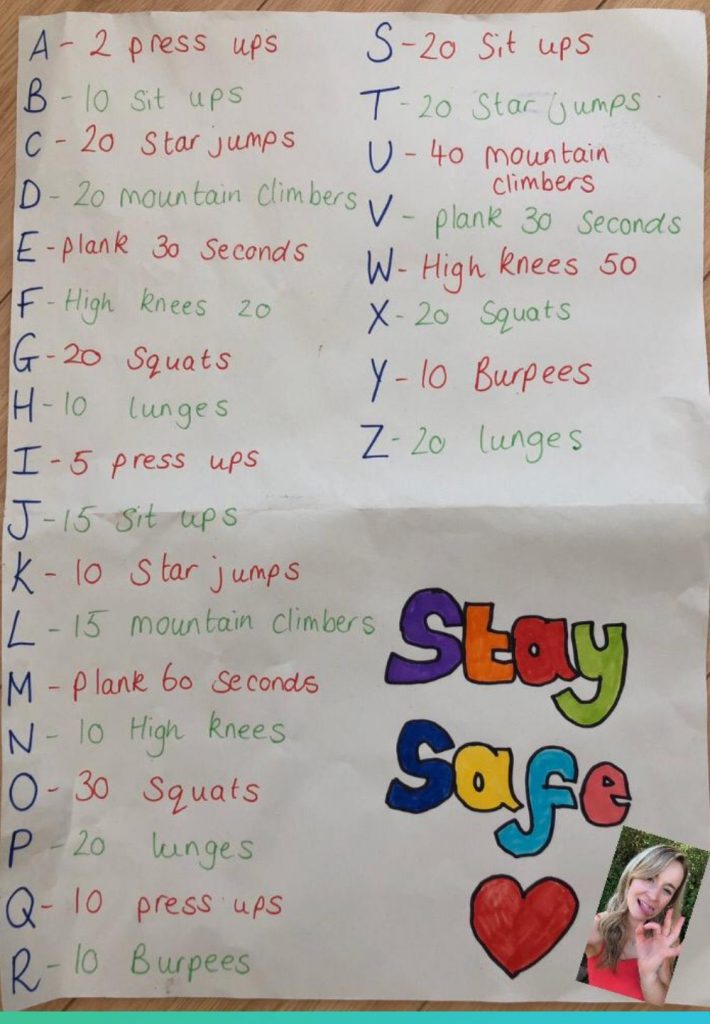 A - 2 press ups
B - 10 Sit ups
C - 20 Star jumps
D - 20 mountain climbers
E - plank 30 Seconds
F - High knees 20
G - 20 Squats
H - 10 lunges
I - 5 press ups
J - 15 Sit ups
K - 10 Star jumps
L - 15 mountain climbers
M - plank 60 seconds
N - 10 High knees
O - 30 Squats
P - 20 lunges
Q - 10 press ups
R - 10 Burpees
S - 20 Sit ups
T - 20 Star jumps
U - 40 mountain
climbers
V - plank 30 Seconds
W - High knees 50
X - 20 Squats
Y - 10 Burpees
Z - 20 lunges
Stay
Safe